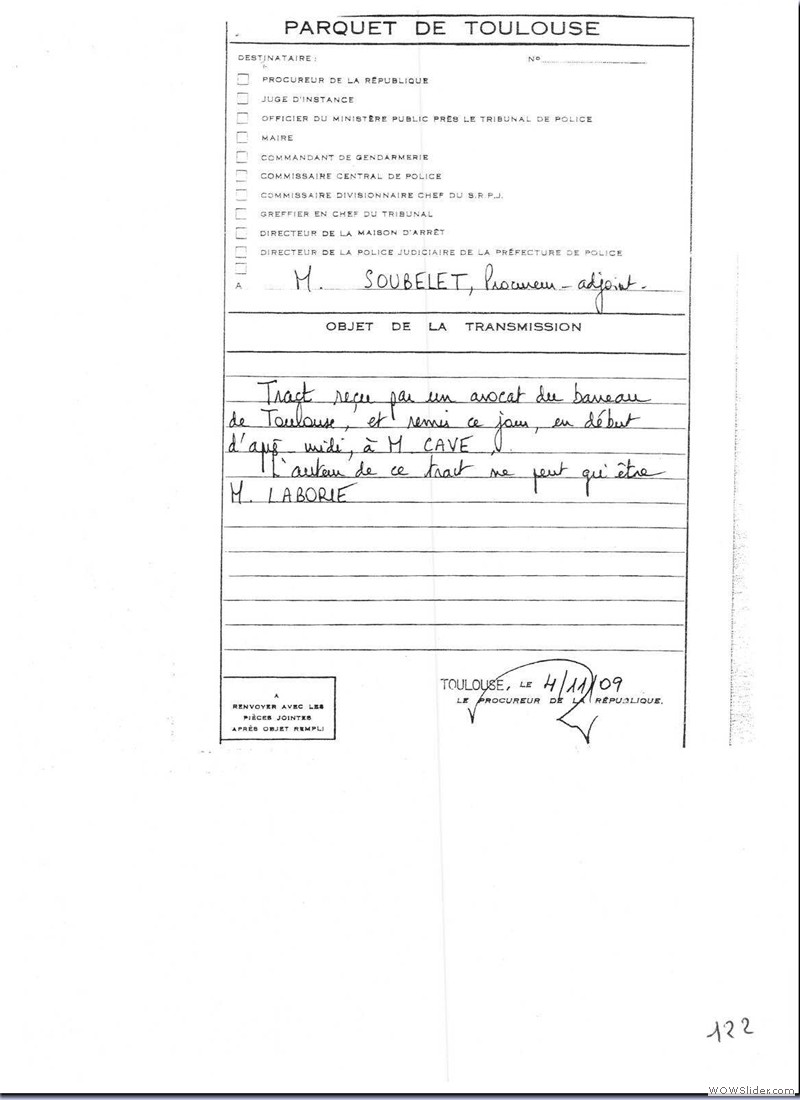 PARQUET DE TOULOUSE
DESTINATAIRE : N°
PROCUREUR DE LA RÉPUBLIQUE
JUGE D'INSTANCE
OFFICIER DU MINISTÈRE PUBLIC PRÈS LE TRIBUNAL DE POLICE
MAIRE
COMMANDANT DE GENDARMERIE
COMMISSAIRE CENTRAL DE POLICE
COMMISSAIRE DIVISIONNAIRE CHEF DU S.R.P.J.
GREFFIER EN CHEF DU TRIBUNAL
DIRECTEUR DE LA MAISON D'ARRÊT
DIRECTEUR DE LA POLICE JUDICIAIRE DE LA PRÉFECTURE DE POLICE
A M. SOUBELET, Procureur-adjoint.
OBJET DE LA TRANSMISSION
Tract reçu par un avocat du barreau
de Toulouse, et remis ce jour, en début
d'apç-midi, à M CAVE.
L'auteur de ce tract ne peut qu'être
M. LABORIE
TOULOUSE, LE 4/11/09
LE PROCUREUR DE LA RÉPUBLIQUE.
A
RENVOYER AVEC LES
PIÈCES JOINTES
APRÈS OBJET REMPLI
122
WOWSlider.com